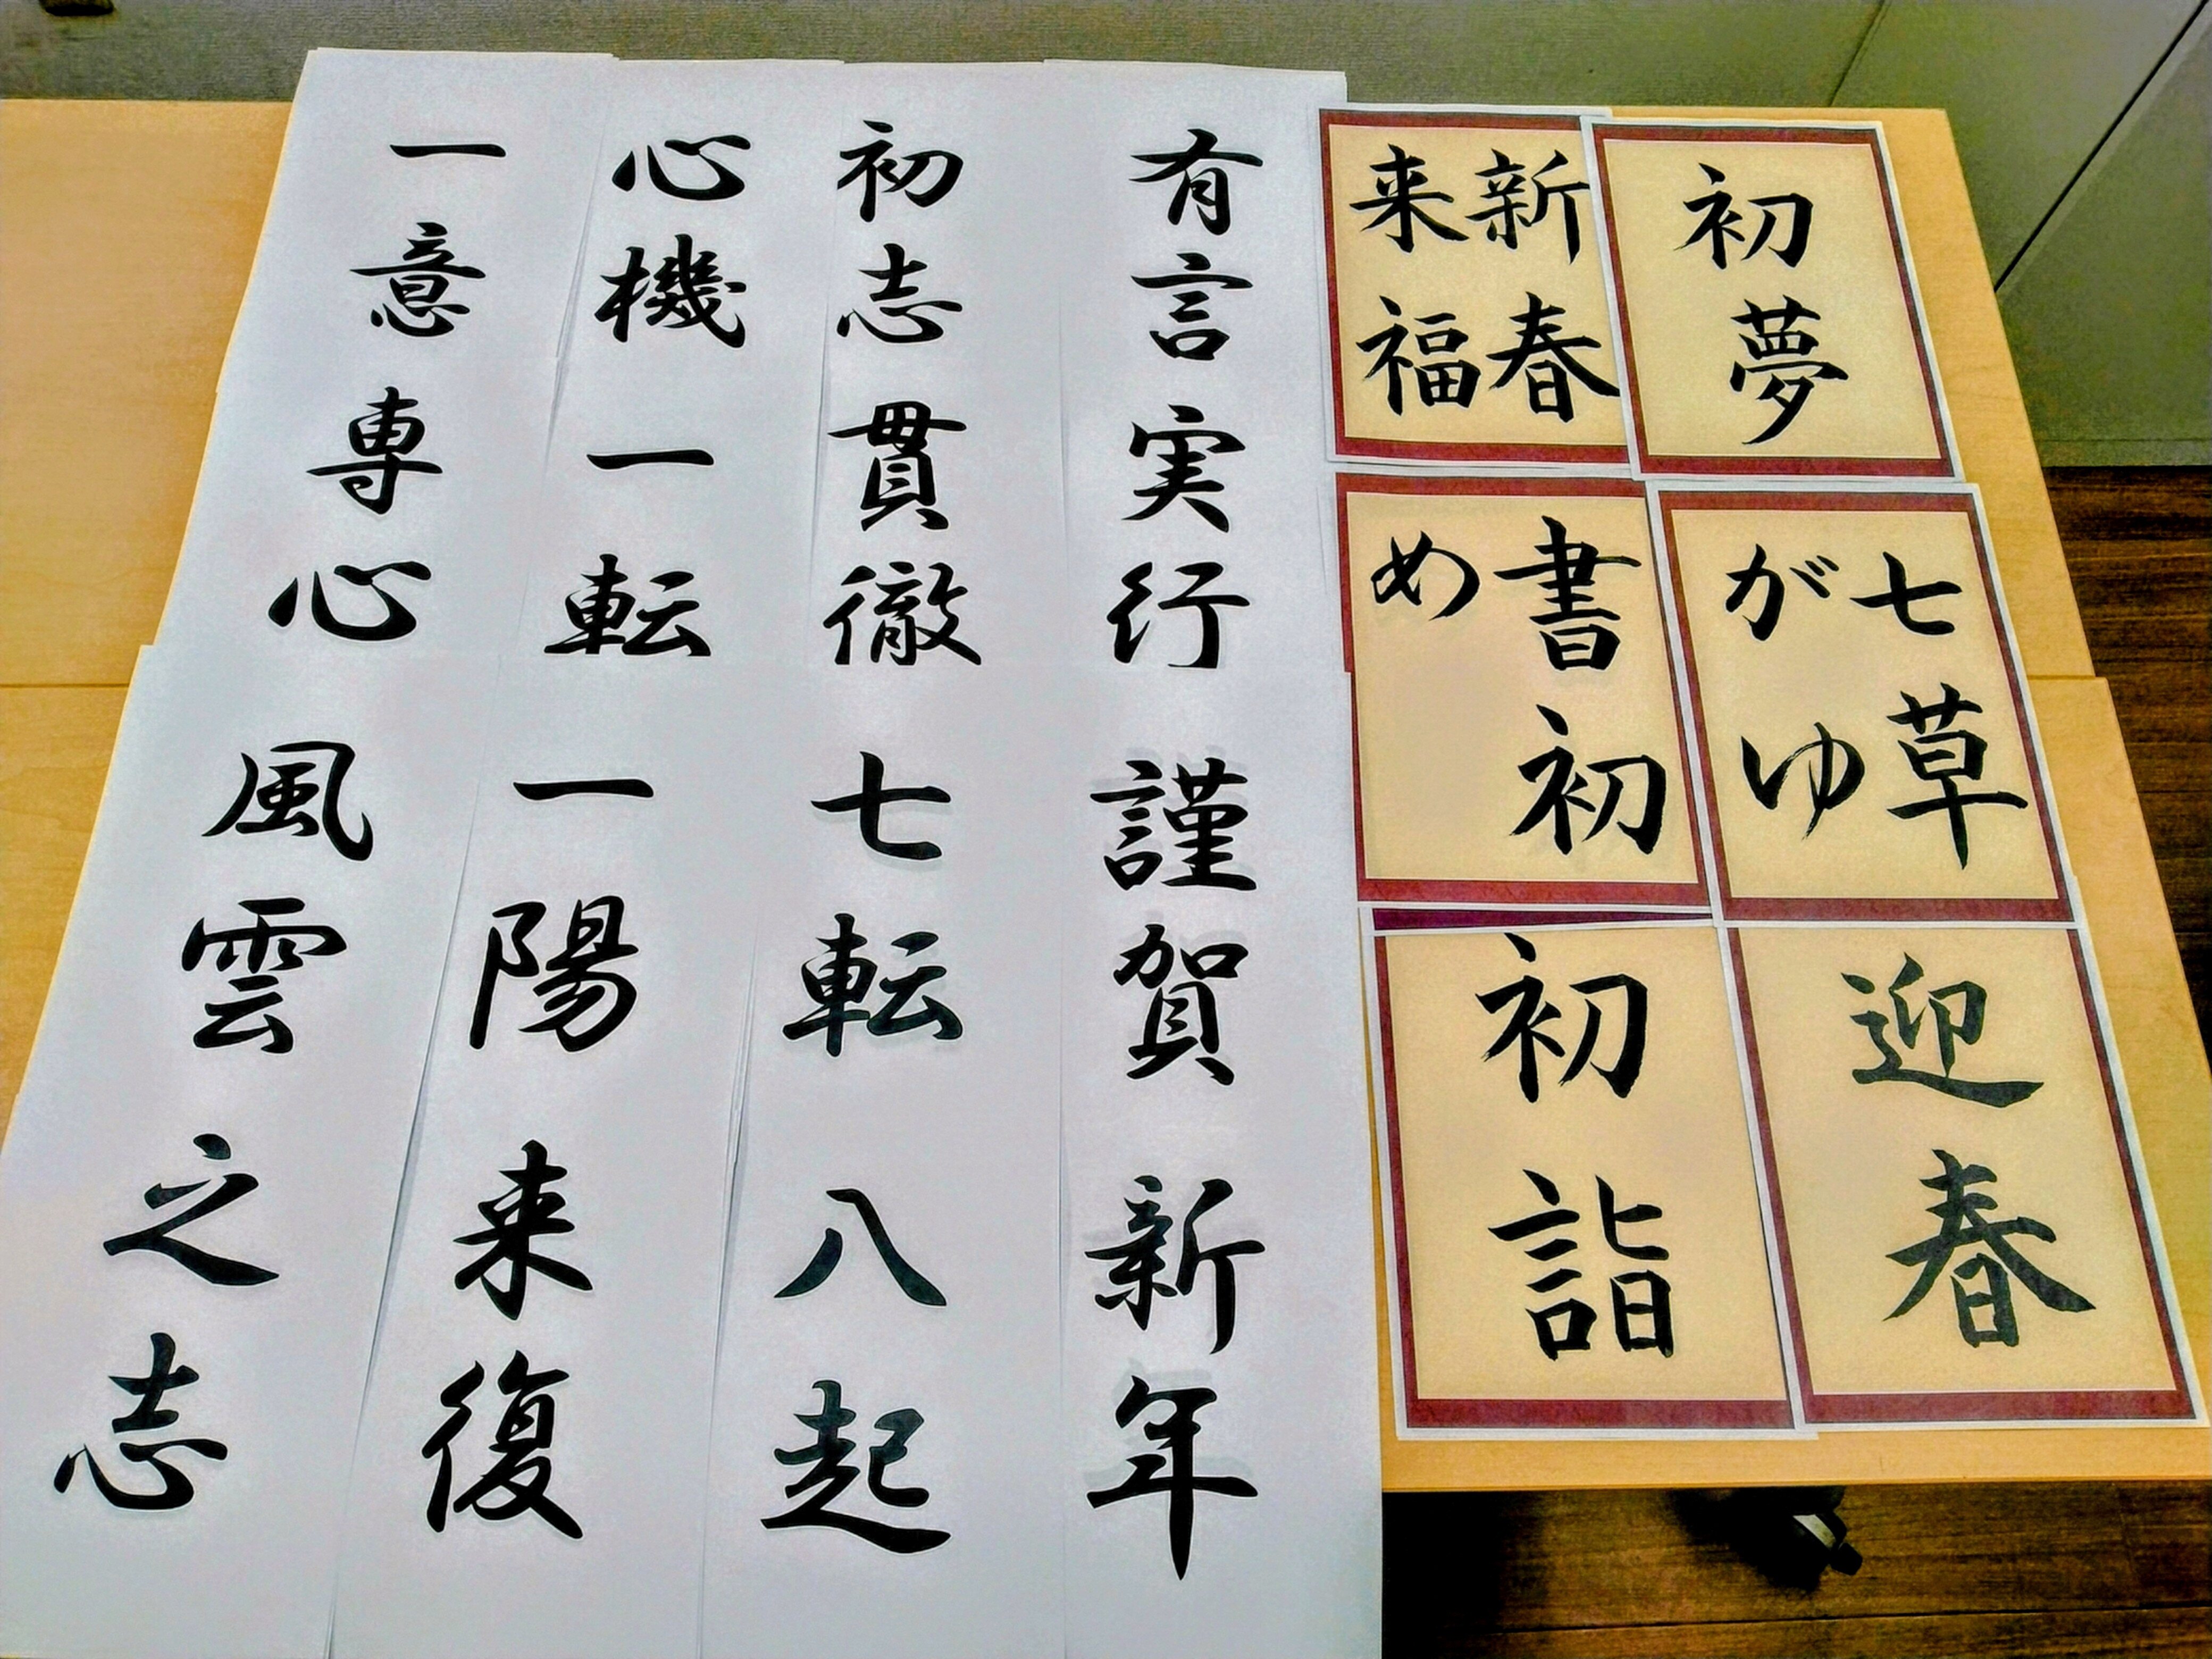 有言実行
初志貫徹
心機一転
一意専心
謹賀新年
七転八起
一陽来復
風雲之志
初夢
新春
来福
七草
がゆ
書初
め
迎春
初詣